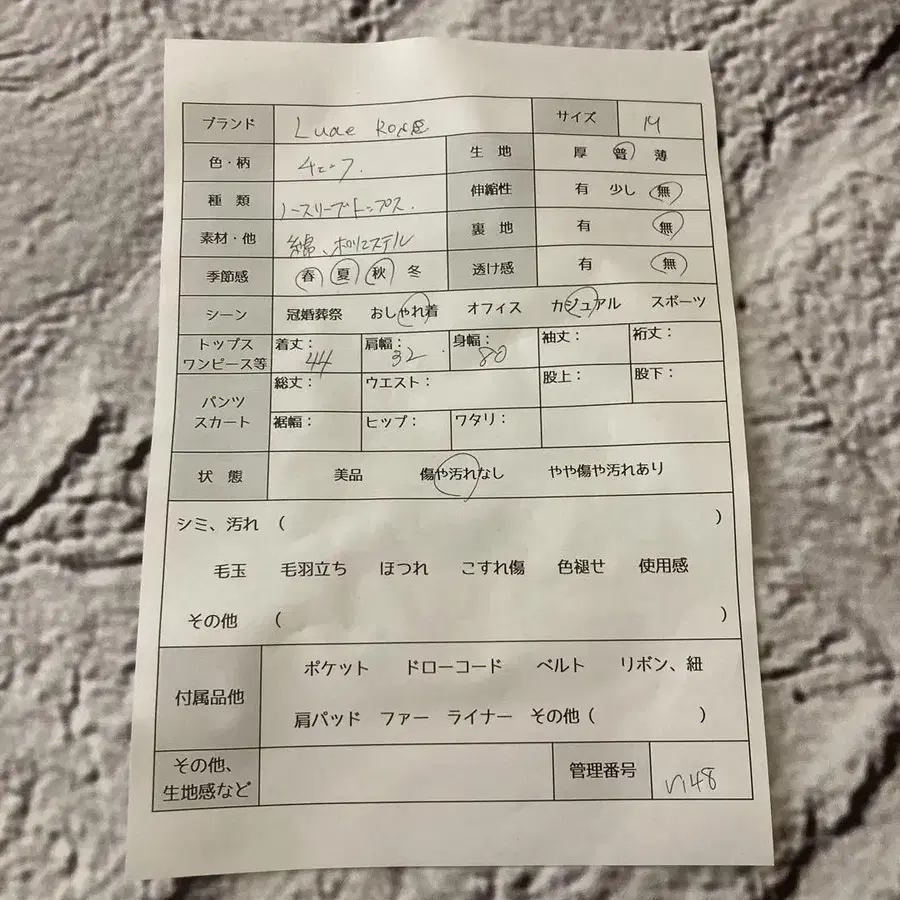 ブランド Luxe Rose サイズ M
色・柄 チェック. 生地 厚 普 薄
種類 ノースリーブトップス. 伸縮性 有 少し 無
素材・他 綿、ポリエステル 裏地 有 無
季節感 春 夏 秋 冬 透け感 有 無
シーン 冠婚葬祭 おしゃれ着 オフィス カジュアル スポーツ
トップス ワンピース等 着丈: 44 肩幅: 32 身幅: 80 袖丈: 裄丈:
パンツ スカート 総丈: ウエスト: 股上: 股下:
裾幅: ヒップ: ワタリ:
状態 美品 傷や汚れなし やや傷や汚れあり
シミ、汚れ ( )
毛玉 毛羽立ち ほつれ こすれ傷 色褪せ 使用感
その他 ( )
付属品他 ポケット ドローコード ベルト リボン、紐
肩パッド ファー ライナー その他 ( )
その他、生地感など 管理番号